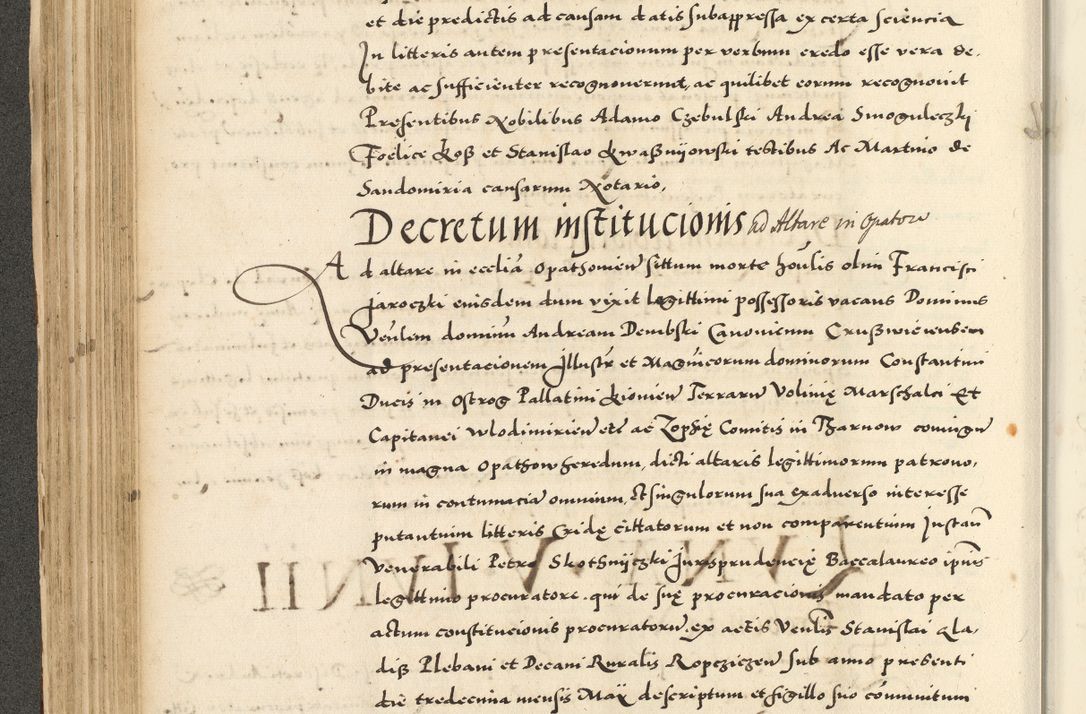 et die predictis ad causam datis subappressa ex certa sciencia
In litteris autem presentacionum per verbum credo esse vera de-
bite ac sufficienter recognouerunt, ac quilibet eorum recognouit
Presentibus Nobilibus Adamo Czebulski Andrea Smoguleczki
Foelice Koß et Stanislao Kwaßnijowski testibus Ac Martino de
Sandomiria causarum Notario,
Decretum institucionis ad Altare in Opatow
Ad altare in ecclia Opathouien sittum morte houlis olim Francisci
Jaroczki eiusdem dum vixit legittimi possessoris vacans Dominus
Venlem dominum Andream Dembski Canonicum Crußwiciensem
ad presentacionem Illustr et Magnicorum dominorum Constantini
Ducis in Ostrog Pallatini Kiouien Terrarum Volinię Marschalci Et
Capitanei Wlodimirien etc ac Zophię Comitis in Tharnow coniugum
in magna Opathow heredum, dicti altaris legittimorum patrono,
rum in contumacia omnium, et singulorum sua ex aduerso interesse
putantium litteris Cridę cittatorum et non comparentium Instan
Venerabili Petro Skothnijczki Jurisprudencię Baccalaureo ipius
legittimo procuratore. qui de suę procuracionis mandato per
actum constitucionis procuratorum ex actis Venlis Stanislai Kla,
diß Plebani et Decani Ruralis Ropcziczen sub anno presenti
die tredecima mensis Maij descriptum et sigillo suo communitum